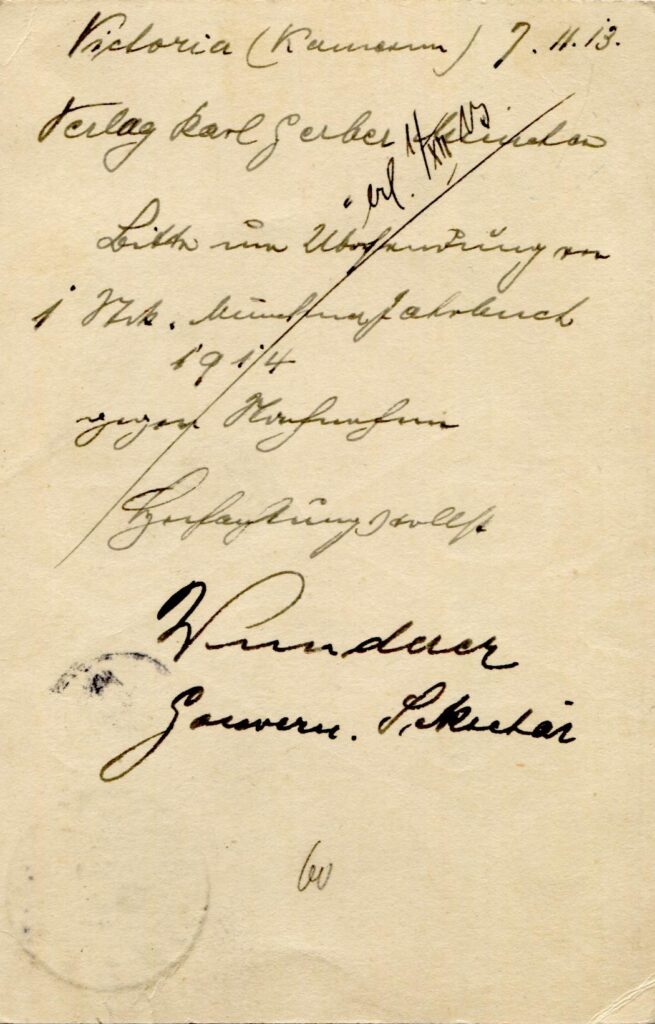 Victoria (Kamerun) 7.11.13.
Verlag Karl Gerber München
erl. 17/XII 13
Bitte um Übersendung von
1 Stk. Münchner Jahrbuch
1914
gegen Nachnahme
Hochachtungsvollst
Wunderer
Gouvern. Sekretär